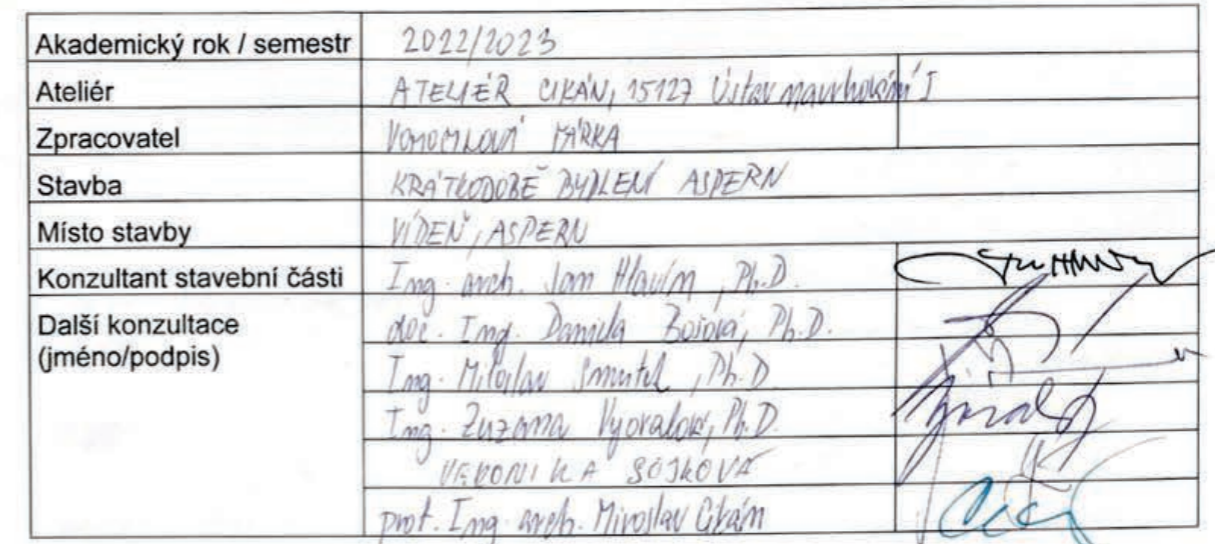 Akademický rok / semestr 2022/2023
Ateliér ATELIÉR CIKÁN, 15127 Ústav navrhování I
Zpracovatel VONOCILOVÁ MÁRKA
Stavba KRÁTKODOBÉ BYDLENÍ ASPERN
Místo stavby VÍDEŇ, ASPERN
Konzultant stavební části Ing. arch. Jan Hlavín, Ph.D.
Další konzultace doc. Ing. Daniela Bošová, Ph.D.
(jméno/podpis) Ing. Miloslav Smutek, Ph.D.
Ing. Zuzana Vyoralová, Ph.D.
VERONIKA SOJKOVÁ
prof. Ing. arch. Miroslav Cikán